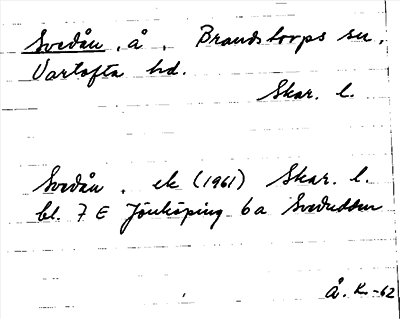 Svedån, å, Brandstorps sn,
Vartofta hd.
Skar. l.
Svedån, ek (1961) Skar. l.
bl. 7 E Jönköping 6a Svedudden
Å. K. -62